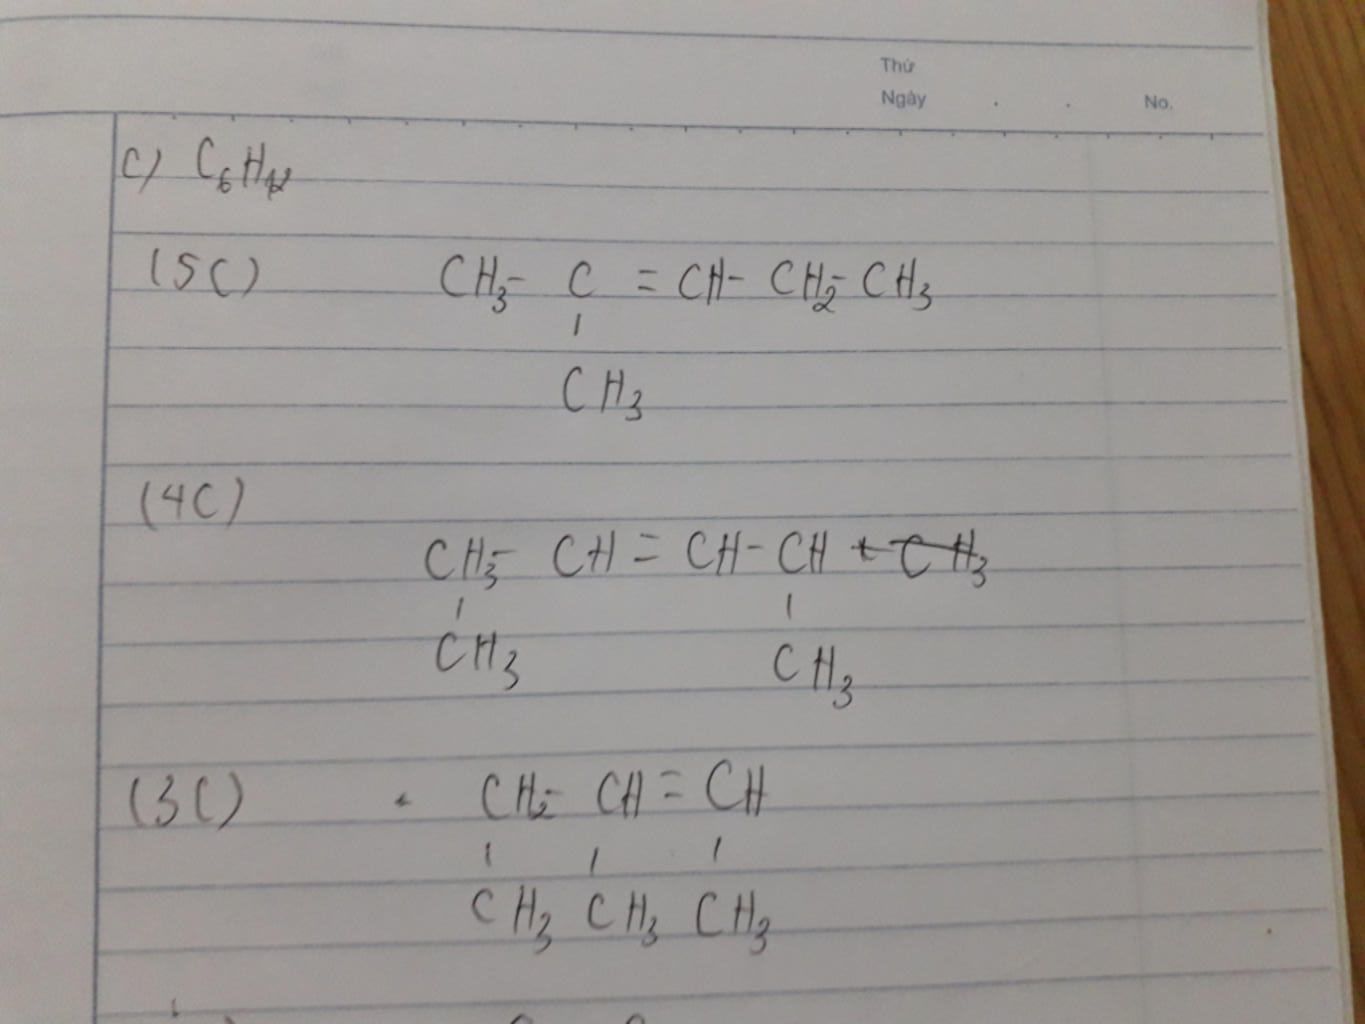 Thứ
Ngày . . No.
c) C6H12
(5C) CH3- C = CH- CH2- CH3
CH3
(4C)
CH3- CH = CH- CH - CH3
CH3 CH3
(3C) CH2- CH = CH
CH3 CH3 CH3